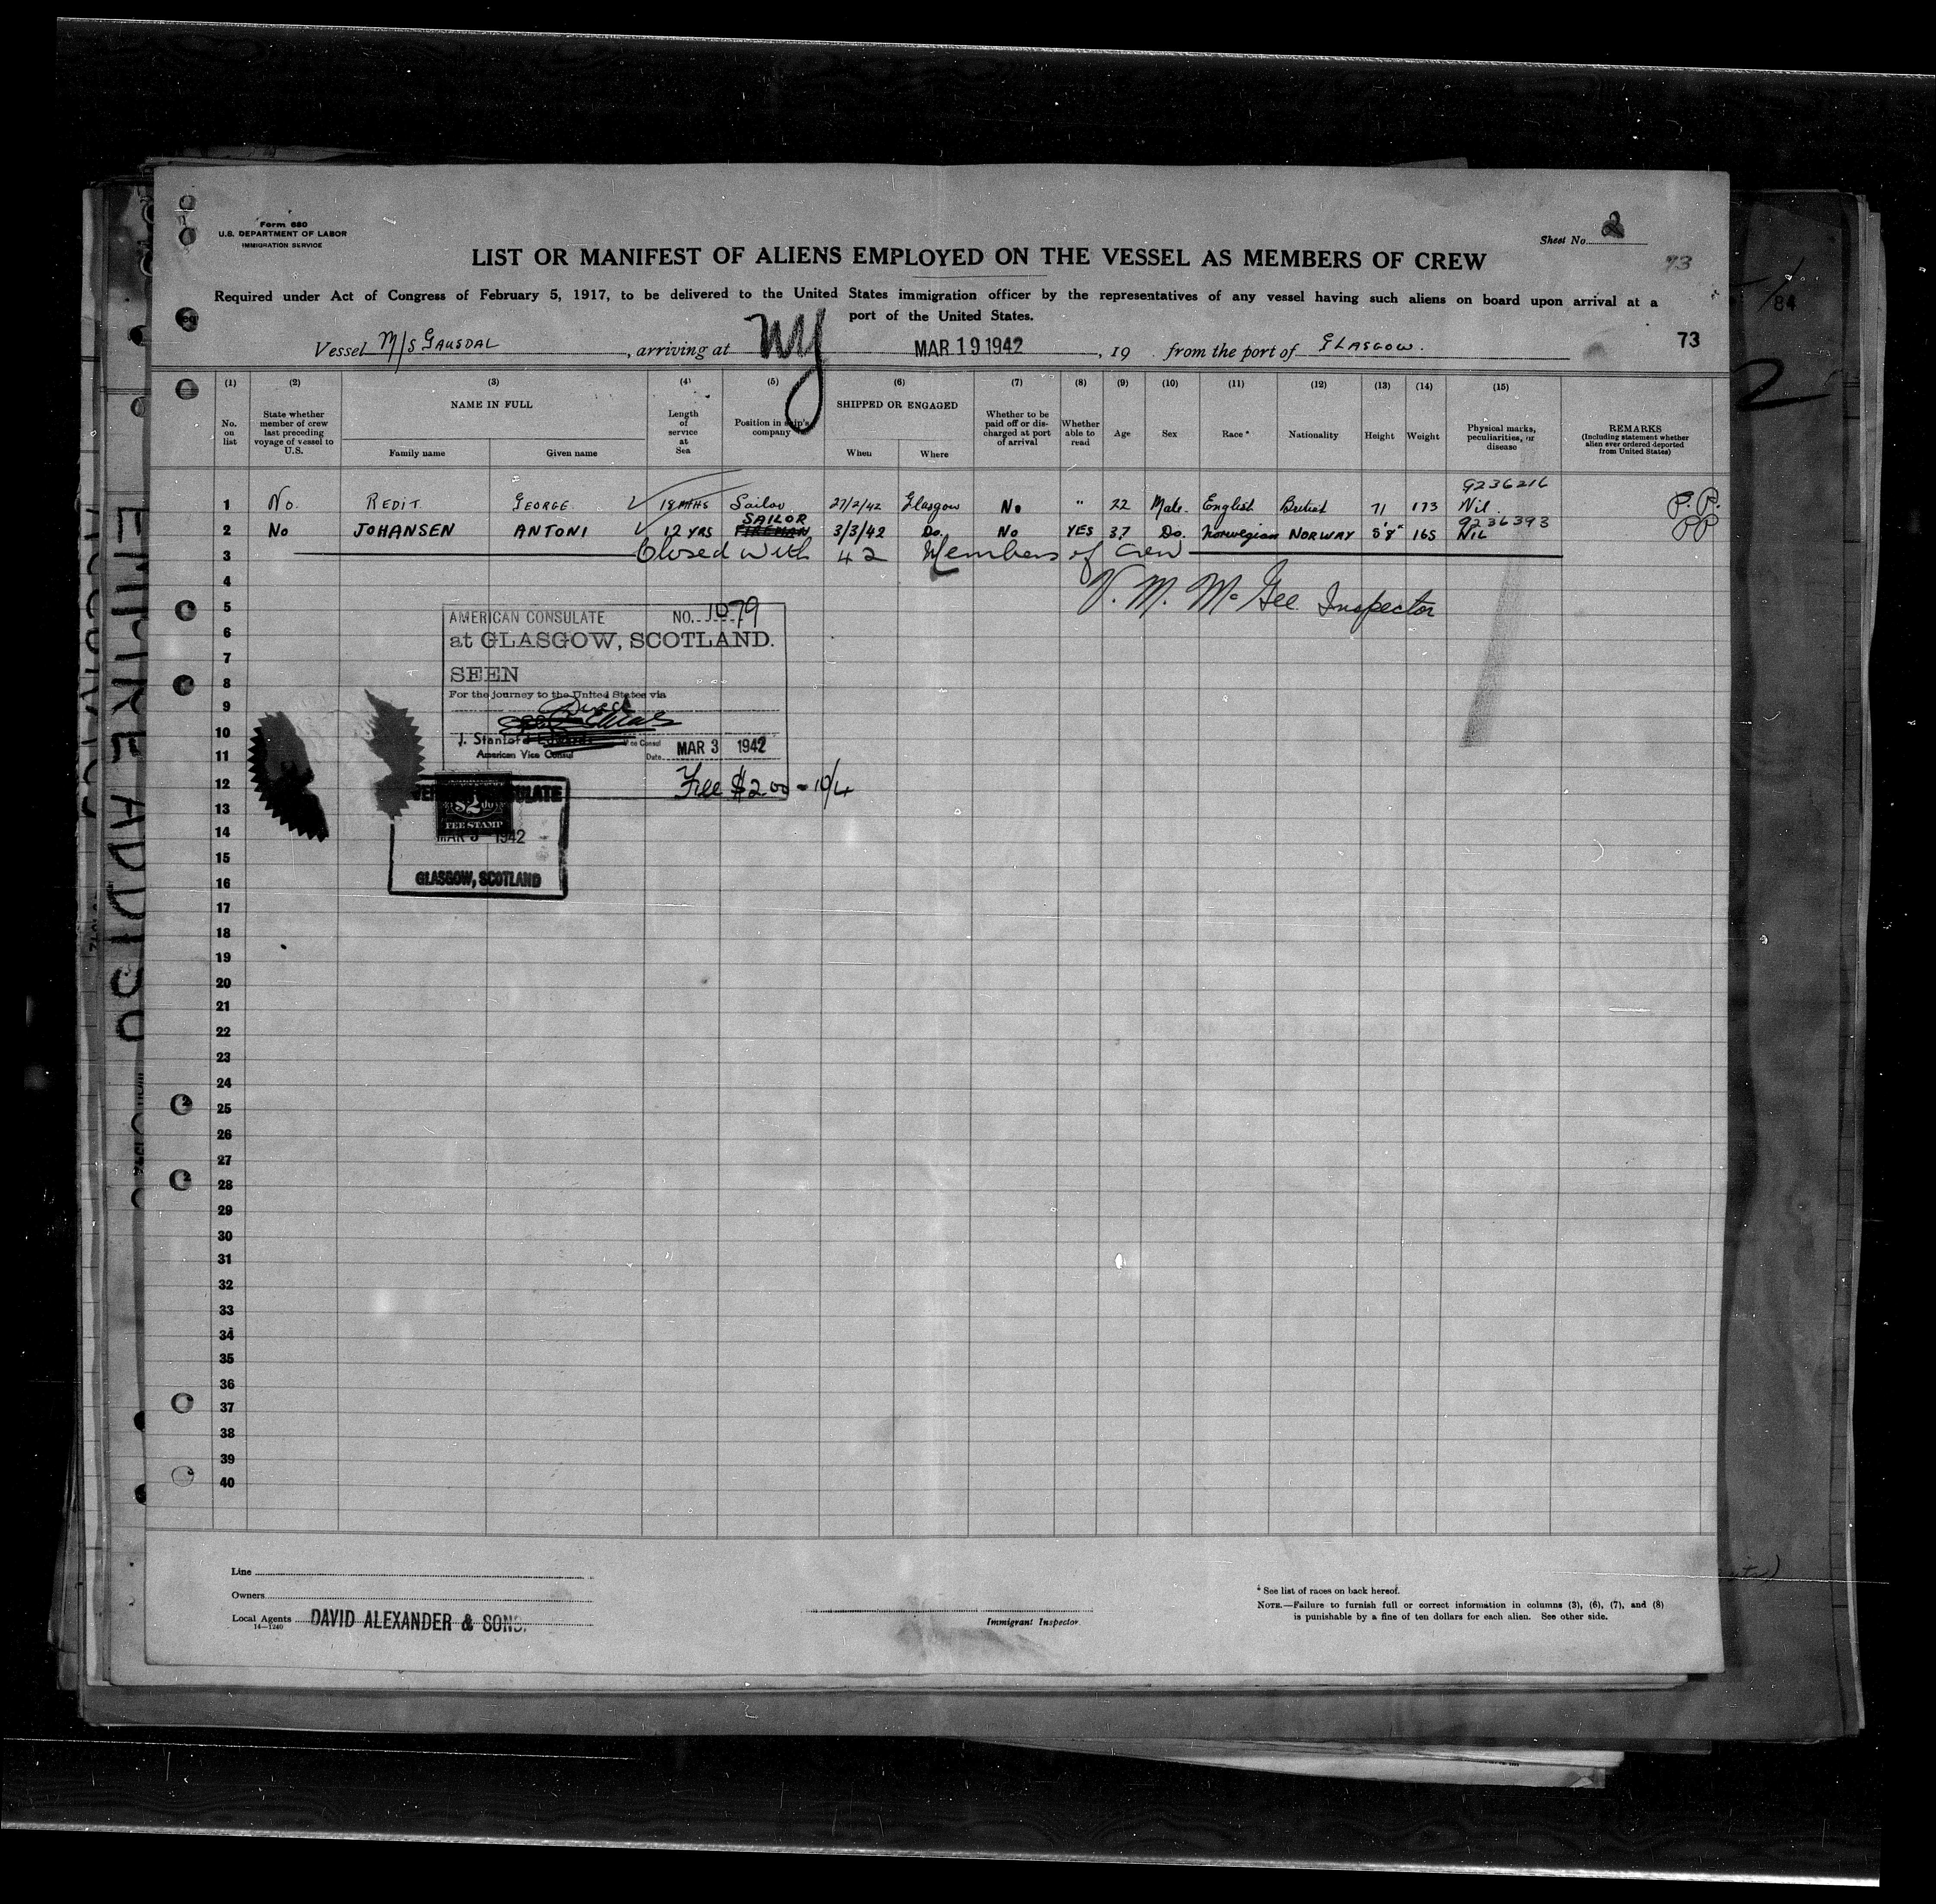 Form 680
U.S. DEPARTMENT OF LABOR
IMMIGRATION SERVICE
Sheet No. 2
LIST OR MANIFEST OF ALIENS EMPLOYED ON THE VESSEL AS MEMBERS OF CREW
93
Required under Act of Congress of February 5, 1917, to be delivered to the United States immigration officer by the representatives of any vessel having such aliens on board upon arrival at a
port of the United States.
73
Vessel M/S GAUSDAL, arriving at NY MAR 19 1942, 19 from the port of GLASGOW.
(1) (2) (3) (4) (5) (6) (7) (8) (9) (10) (11) (12) (13) (14) (15)
No. on list
State whether member of crew last preceding voyage of vessel to U.S.
NAME IN FULL
Family name
Given name
Length of service at Sea
Position in ship's company
SHIPPED OR ENGAGED
When
Where
Whether to be paid off or discharged at port of arrival
Whether able to read
Age
Sex
Race *
Nationality
Height
Weight
Physical marks, peculiarities, or disease
REMARKS
(Including statement whether alien ever ordered deported from United States)
9236216
1 No. REDIT. GEORGE 18 MTHS Sailor 27/2/42 Glasgow No " 22 Male. English British 71 173 Nil. P.P.
SAILOR 9236393
2 No JOHANSEN ANTONI 12 YRS FIREMAN 3/3/42 Do. No YES 37 Do. Norwegian NORWAY 5'8" 165 NIL PP
3 Closed with 42 Members of Crew
4 V. M. McGee Inspector
5
6
7
8
9
10
11
12
13
14
15
16
17
18
19
20
21
22
23
24
25
26
27
28
29
30
31
32
33
34
35
36
37
38
39
40
AMERICAN CONSULATE NO. 1079
at GLASGOW, SCOTLAND.
SEEN
For the journey to the United States via
Direct
J. Stanford Edwards Vice Consul
American Vice Consul Date MAR 3 1942
Fee $2.00 = 10/4
CONSULATE
$2.00
FEE STAMP
MAR 3 1942
GLASGOW, SCOTLAND
Line
Owners
Local Agents DAVID ALEXANDER & SONS.
14—1240
Immigrant Inspector.
* See list of races on back hereof.
NOTE.—Failure to furnish full or correct information in columns (3), (6), (7), and (8)
is punishable by a fine of ten dollars for each alien. See other side.
EMPIRE ADDISO
84
2